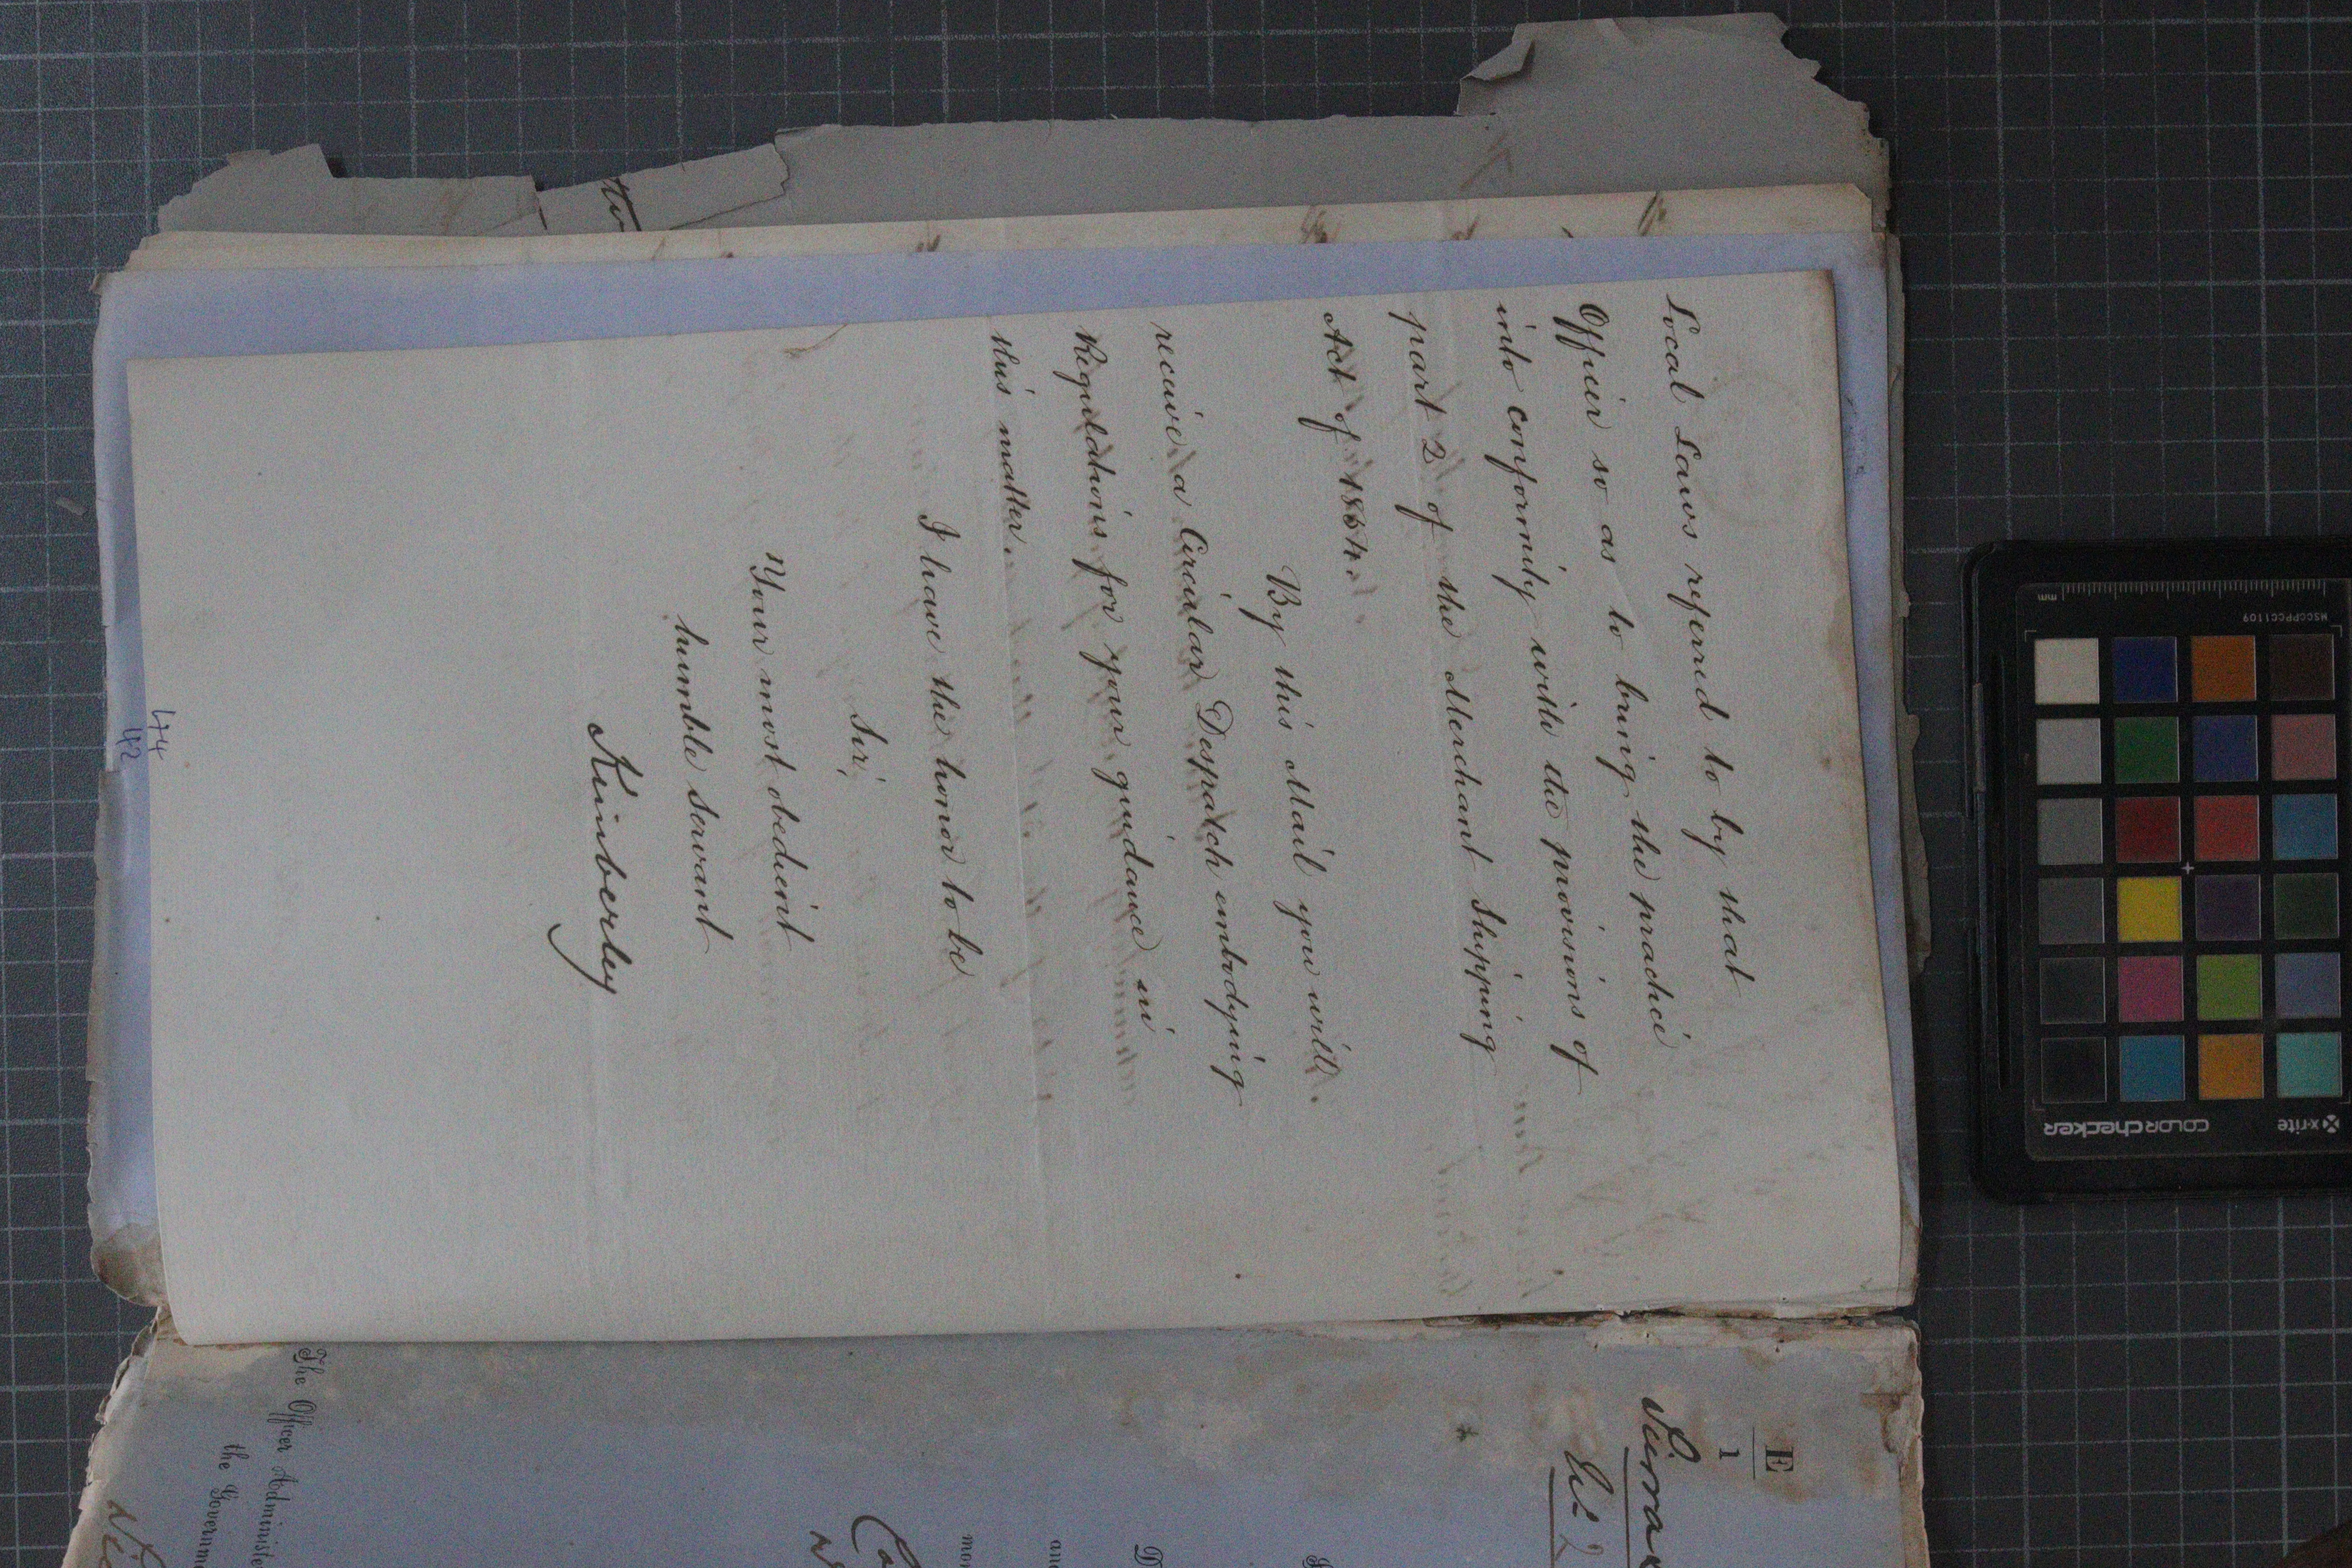 Local Laws referred to by that
Officer so as to bring the practice
into conformity with the provisions of
part 2 of the Merchant Shipping
Act of 1854.
By this Mail you will
receive a Circular Despatch embodying
Regulations for your guidance in
this matter.
I have the honor to be
Sir,
Your most obedient
humble servant
Kimberley
44
42
E
1
Sierra
No 2
D
and
mon
Co
The Officer Administe
the Governme
MSCCPPCC1109
mm
x-rite
COLORchecker